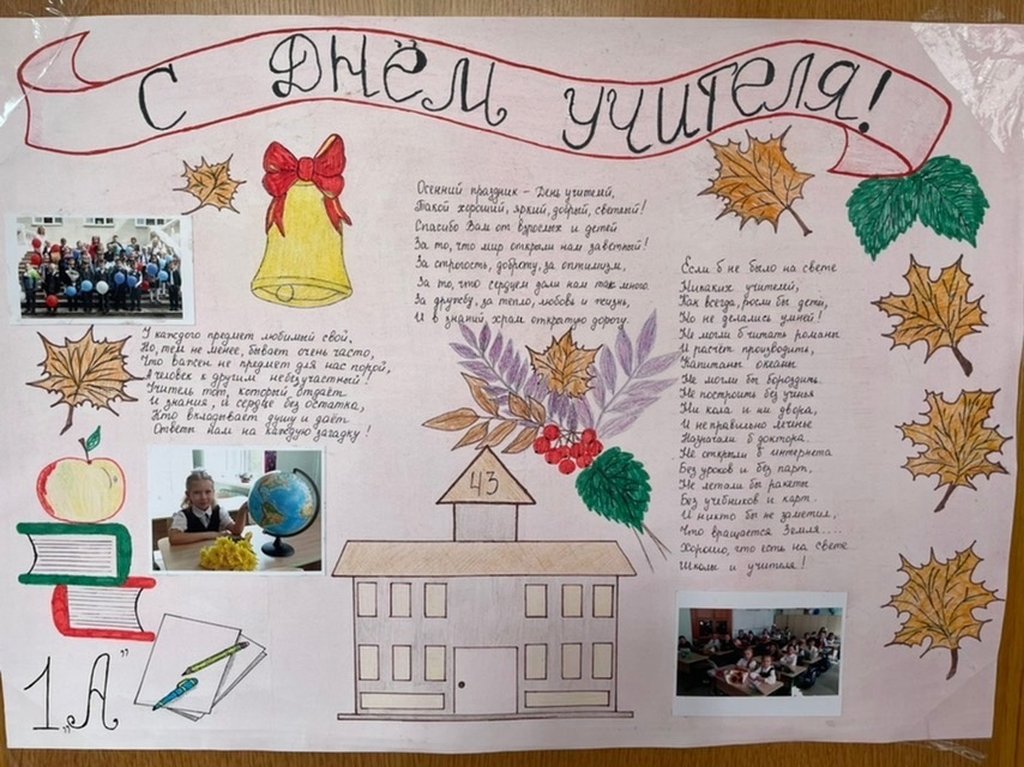 С Днём учителя!
Осенний праздник – День учителей,
Такой хороший, яркий, добрый, светлый!
Спасибо Вам от взрослых и детей
За то, что мир открыли нам заветный!
За строгость, доброту, за оптимизм,
За то, что сердцем дали нам так много.
За дружбу, за тепло, любовь и жизнь,
И в знаний храм открытую дорогу.
У каждого предмет любимый свой,
Но, тем не менее, бывает очень часто,
Что важен не предмет для нас порой,
А человек к другим небезучастный!
Учитель тот, который отдаёт
И знания, и сердце без остатка,
Кто вкладывает душу и даёт
Ответы нам на каждую загадку!
Если б не было на свете
Никаких учителей,
Как всегда, росли бы дети,
Но не делались умней!
Не могли б читать романы
И расчёт производить,
Капитаны океаны
Не могли бы бороздить.
Не построить без ученья
Ни кола и ни двора,
И неправильно леченье
Назначали б доктора.
Не открыли б интернета
Без уроков и без парт,
Не летали бы ракеты
Без учебников и карт.
И никто бы не заметил,
Что вращается Земля....
Хорошо, что есть на свете
Школы и учителя!
43
1 „А"